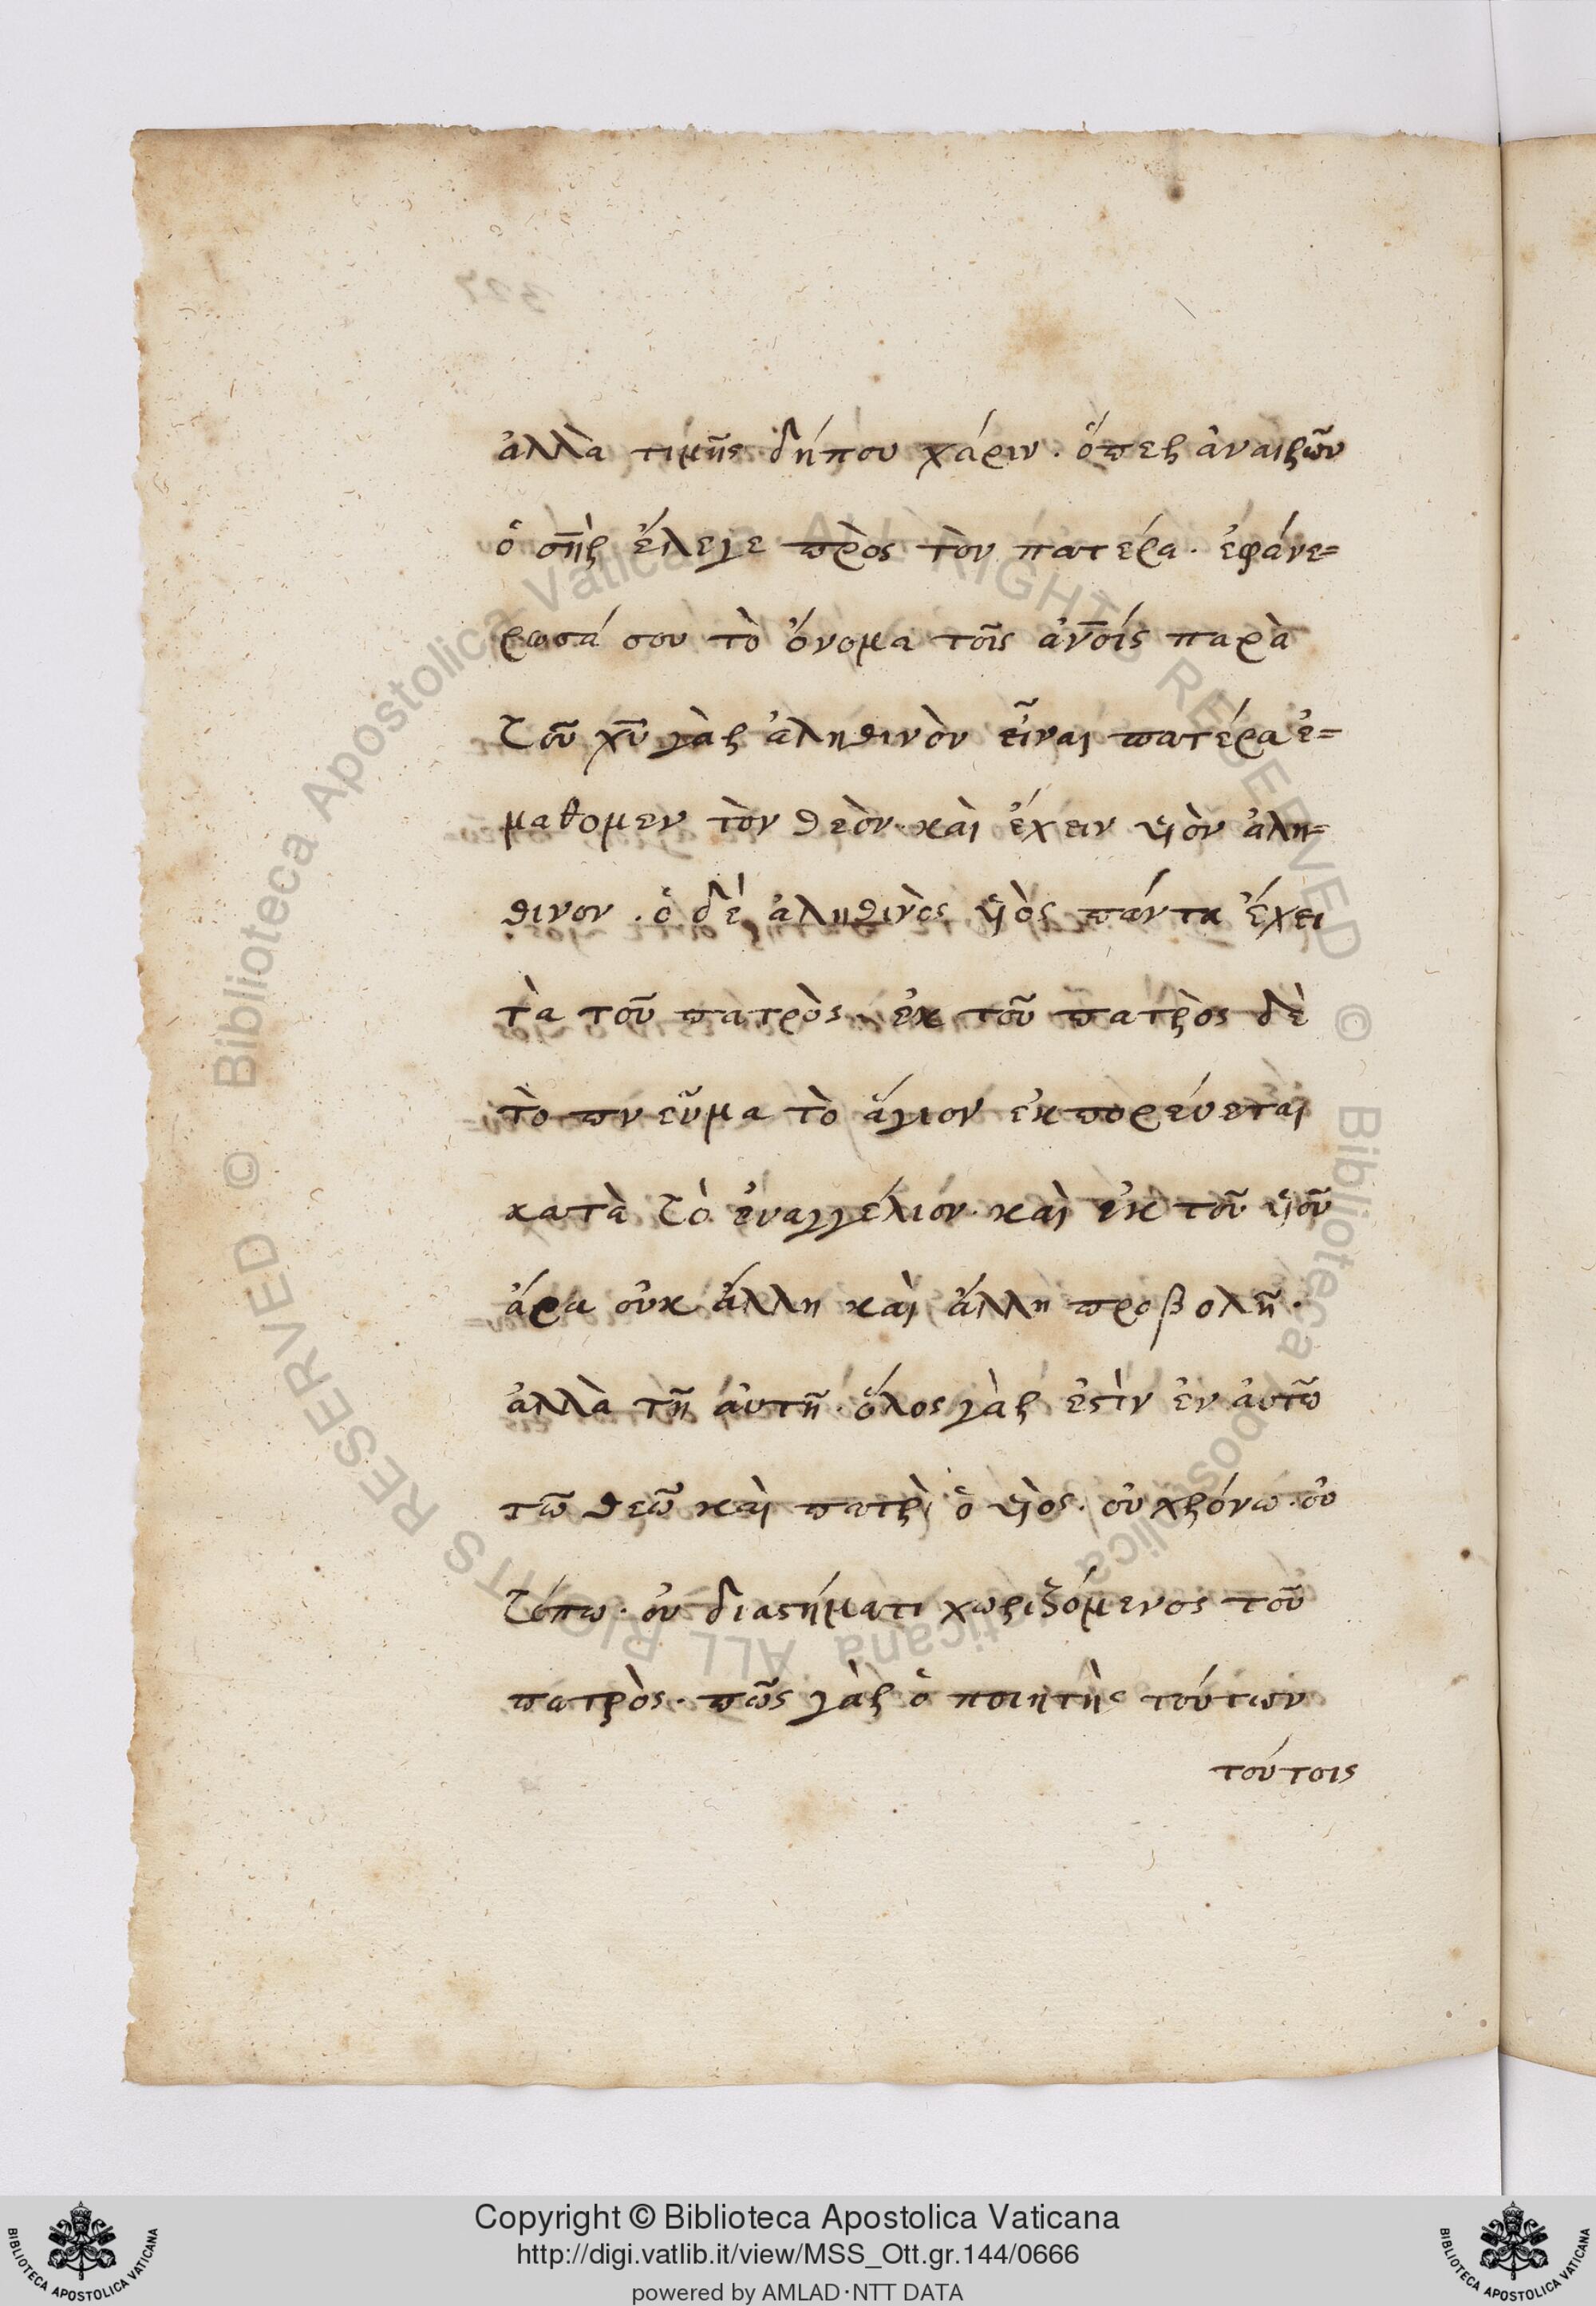 ἀλλὰ τιμῆς δήπου χάριν. ὅπερ ἀναιρῶν
ὁ σ̅η̅ρ ἔλεγε πρὸς τὸν πατέρα. ἐφάνε=
ρωσά σου τὸ ὄνομα τοῖς ἀν̅ο̅ίς παρὰ
τοῦ χ̅υ̅ γὰρ ἀληθινὸν εἶναι πατέρα ἐ=
μαθομεν τὸν θεὸν. καὶ ἔχειν υἱὸν ἀλη=
θινον. ὁ δὲ ἀληθινὸς υἱὸς πάντα ἔχει
τὰ τοῦ πατρὸς. ἐκ τοῦ πατρὸς δὲ
τὸ πνεῦμα τὸ ἅγιον ἐκπορεύεται
κατὰ τὸ ἐυαγγέλιον. καὶ ἐκ τοῦ υἱοῦ
ἄρα οὐκ ἄλλη καὶ ἄλλη προβολῆ.
ἀλλὰ τῆ ἀυτῆ. ὅλος γὰρ ἐστὶν ἐν ἀυτῶ
τῶ θεῶ καὶ πατρὶ ὁ υἱὸς. οὐ χρόνω. οὐ
τόπω. οὐ διαστήματι χωριζόμενος τοῦ
πατρὸς. πῶς γὰρ ὁ ποιητὴς τούτων
τούτοις
Copyright © Biblioteca Apostolica Vaticana
http://digi.vatlib.it/view/MSS_Ott.gr.144/0666
powered by AMLAD·NTT DATA
BIBLIOTECA APOSTOLICA VATICANA
BIBLIOTECA APOSTOLICA VATICANA
© Biblioteca Apostolica Vaticana ALL RIGHTS RESERVED
© Biblioteca Apostolica Vaticana ALL RIGHTS RESERVED